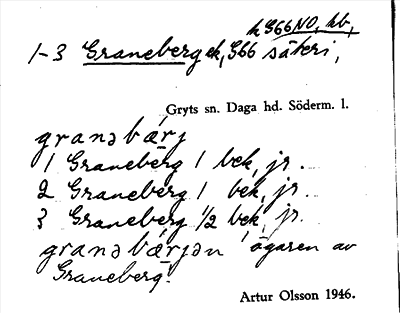 k G66 NO, hb,
1-3 Graneberg ek, G66 säteri,
Gryts sn. Daga hd. Söderm. l.
granəbærj
1 Graneberg 1 bek, jr.
2 Graneberg 1 bek, jr.
3 Graneberg 1/2 bek, jr.
granəbærjən ägaren av
Graneberg.
Artur Olsson 1946.